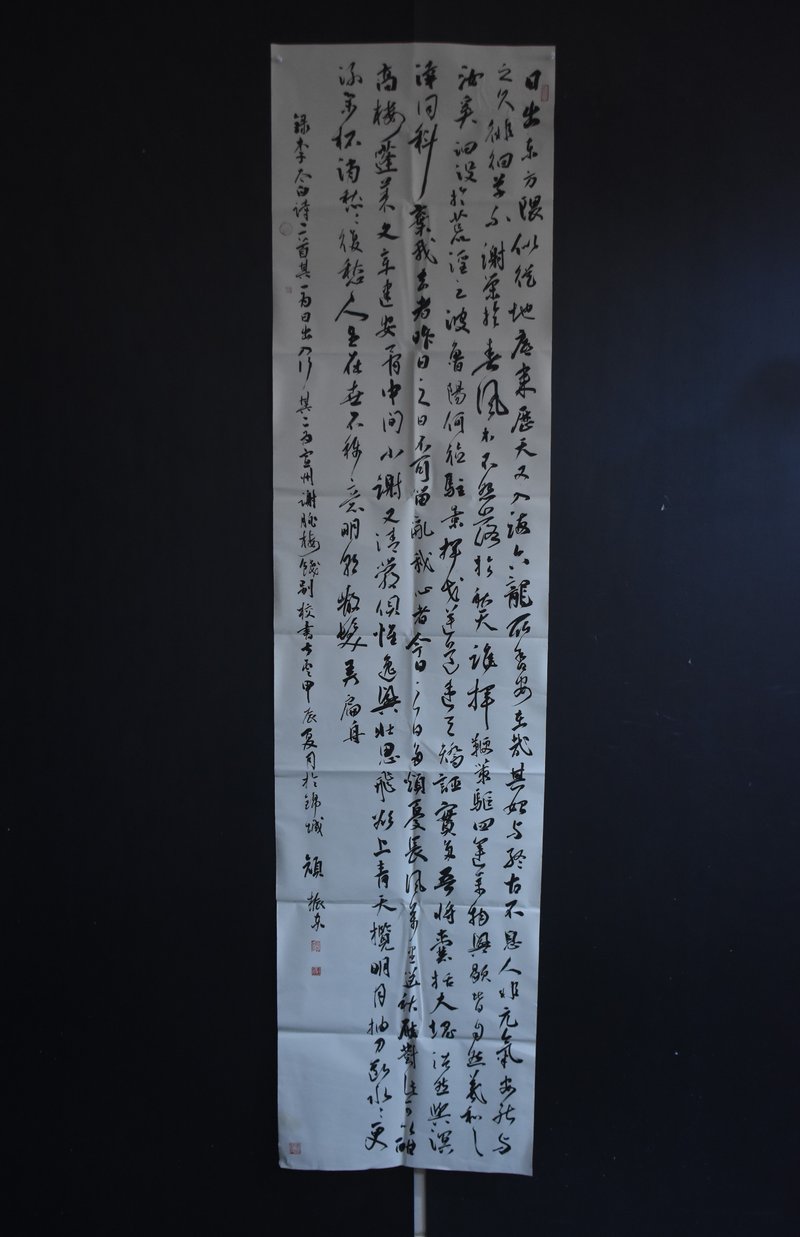 日出东方隈似從地底来歷天又入海六龍所舍安在哉其始与终古不息人非元氣安能与
之久徘徊草不謝榮於春風木不怨落於秋天誰揮鞭策驅四運萬物興歇皆自然羲和〻
汝奚汩没於荒淫之波魯陽何德駐景揮戈逆道違天矯誣實多吾將囊括大塊浩然與溟
涬同科棄我去者昨日之日不可留亂我心者今日之日多煩憂長風萬里送秋雁對此可以酣
高楼蓬莱文章建安骨中间小謝又清發俱懷逸興壯思飛欲上青天攬明月抽刀断水〻更
流举杯消愁〻復愁人生在世不称意明朝散髮弄扁舟
録李太白诗二首其一为日出入行其二为宣州谢朓楼餞别校書叔雲甲辰夏月於錦城 顾振东